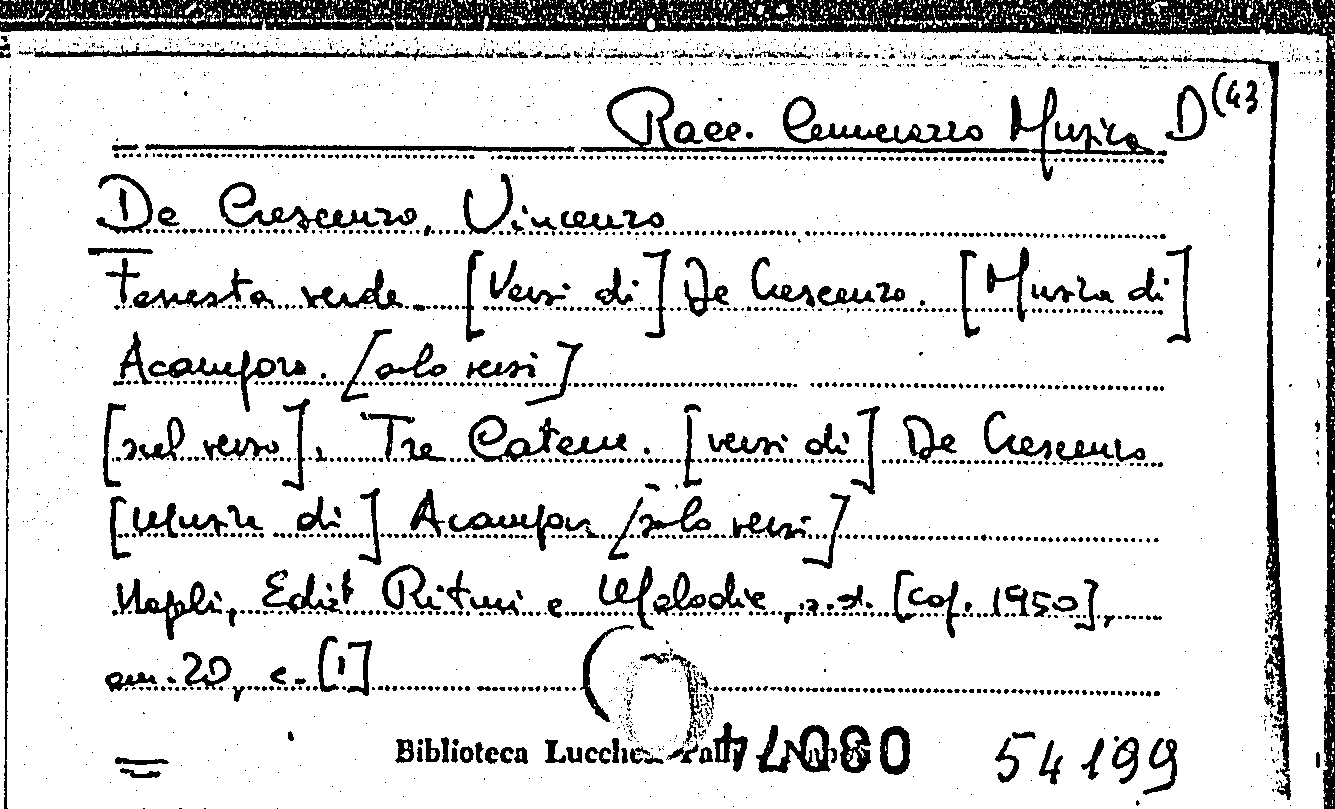 Racc. Cennerazzo Musica D (43
De Crescenzo, Vincenzo
Fenesta verde. [Versi di] De Crescenzo. [Musica di]
Acampora. [solo versi]
[sul verso]. Tre Catene. [versi di] De Crescenzo
[Musica di] Acampora [solo versi]
Napoli, Ediz. Ritmi e Melodie, s.d. [cop. 1950],
cm. 20, c. [1]
Biblioteca Lucchesi Palli
54199